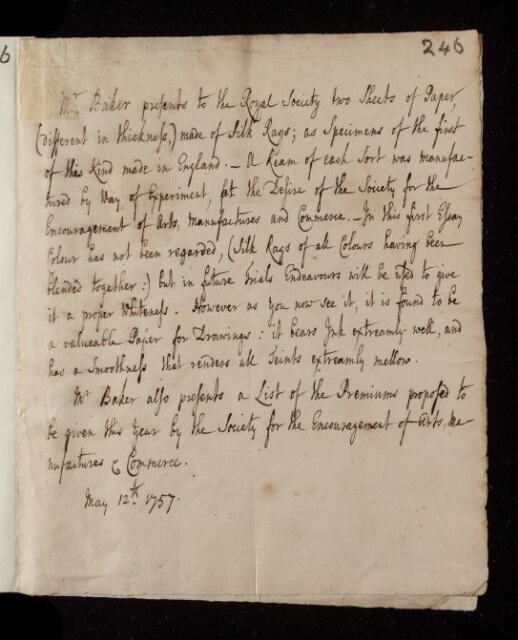 6
246
Mr. Baker presents to the Royal Society two Sheets of Paper,
(different in thickness,) made of Silk Rags; as Specimens of the first
of this Kind made in England. _ A Ream of each Sort was manufac-
tured by Way of Experiment, (at the Desire of the Society for the
Encouragement of Arts, Manufactures and Commerce. _ In this first Essay
Colour has not been regarded, (Silk Rags of all Colours having been
blended together:) but in future Trials Endeavours will be used to give
it a proper Whiteness. However as you now see it, it is found to be
a valueable Paper for Drawings: it bears Ink extreamly well, and
has a Smoothness that renders all Teints extreamly mellow.
Mr. Baker also presents a List of the Premiums proposed to
be given this Year by the Society for the Encouragement of Arts, Ma-
nufactures & Commerce.
May 12th. 1757.